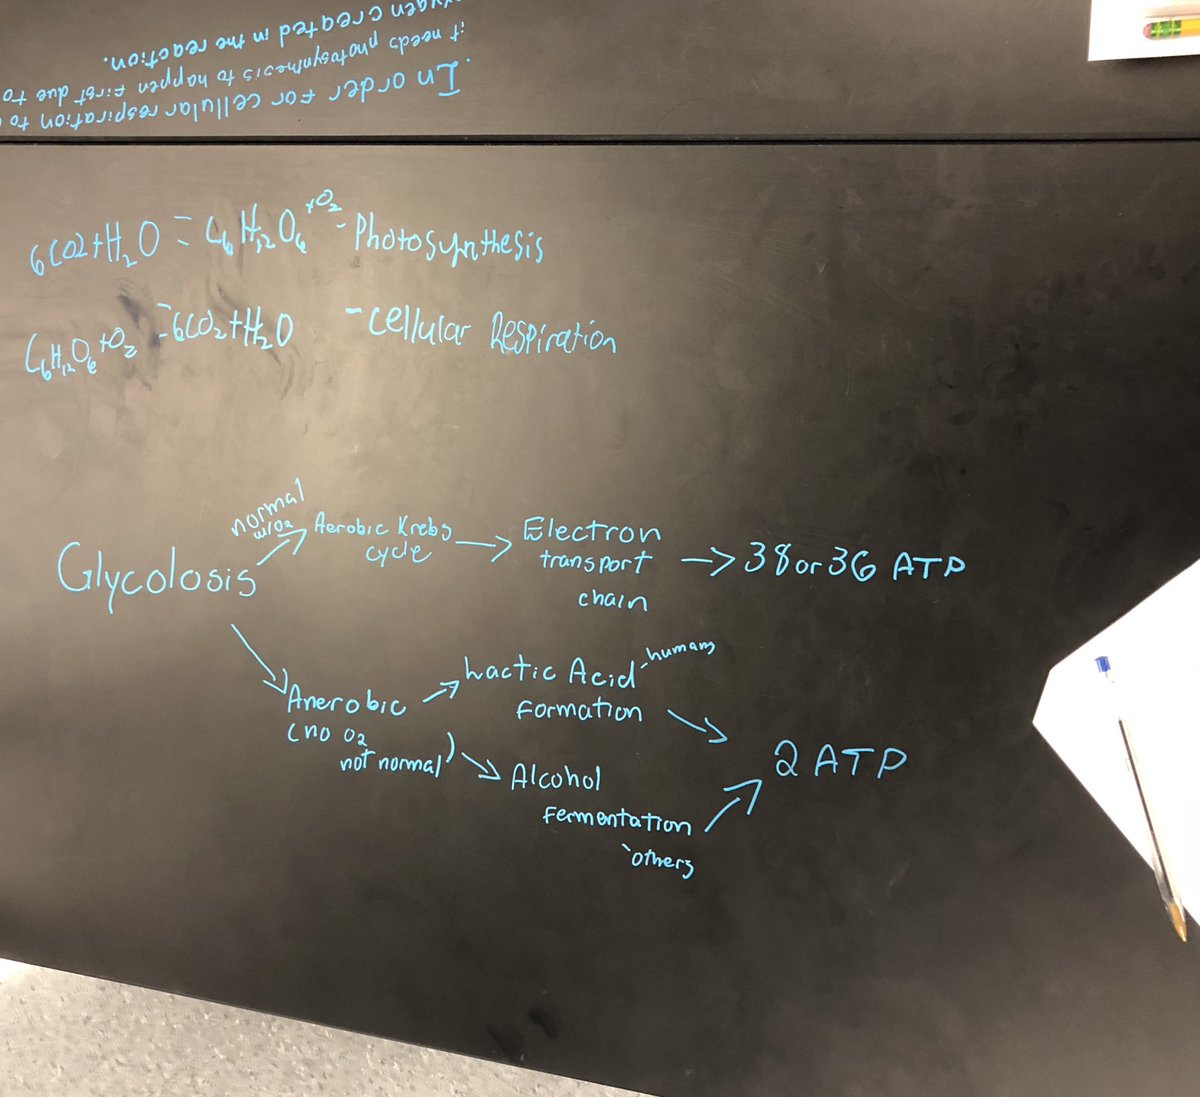 . In order for cellular respiration to
it needs photosynthesis to happen first due to
created in the reaction.
6CO2+H2O = C6H12O6 +O2 - Photosynthesis
C6H12O6+O2 = 6CO2+H2O - cellular Respiration
normal
w/O2
Glycolosis
Aerobic Krebs
cycle
Electron
transport
chain
38 or 36 ATP
Anerobic
(no O2
not normal)
Lactic Acid - humans
Formation
Alcohol
Fermentation
'others
2 ATP